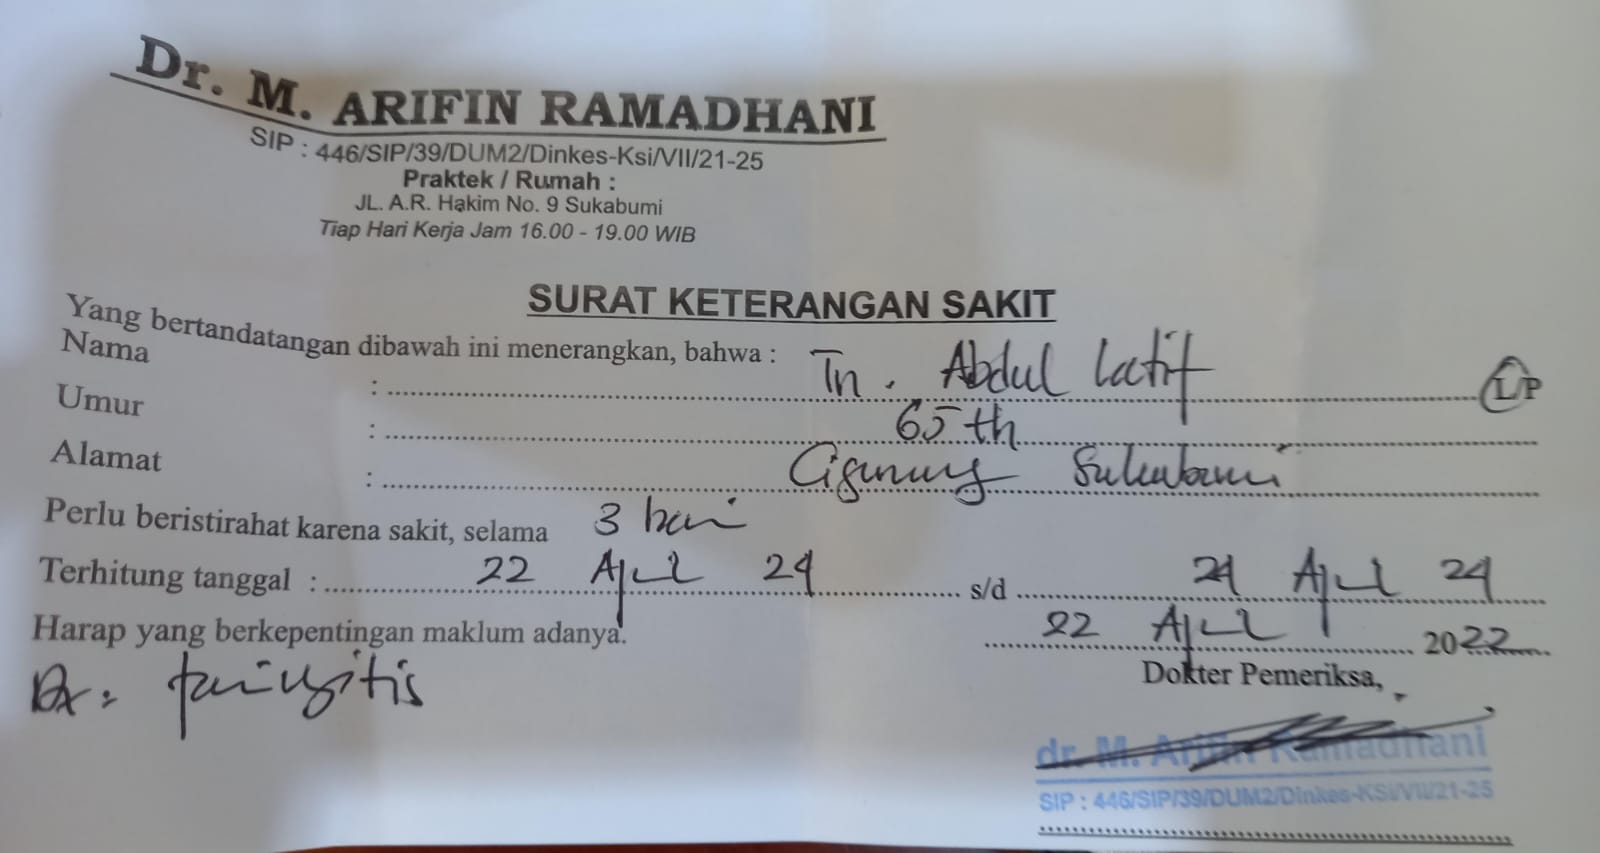 Dr. M. ARIFIN RAMADHANI
SIP : 446/SIP/39/DUM2/Dinkes-Ksi/VII/21-25
Praktek / Rumah :
JL. A.R. Hakim No. 9 Sukabumi
Tiap Hari Kerja Jam 16.00 - 19.00 WIB
SURAT KETERANGAN SAKIT
Yang bertandatangan dibawah ini menerangkan, bahwa :
Nama : Tn. Abdul Latif L/P
Umur : 65 th
Alamat : Cigunung Sukabumi
Perlu beristirahat karena sakit, selama 3 hari
Terhitung tanggal : 22 April 24 s/d 24 April 24
Harap yang berkepentingan maklum adanya.
22 April 2022
Dokter Pemeriksa,
Dx : faringitis
dr. M. Arifin Ramadhani
SIP : 446/SIP/39/DUM2/Dinkes-KSi/VII/21-25